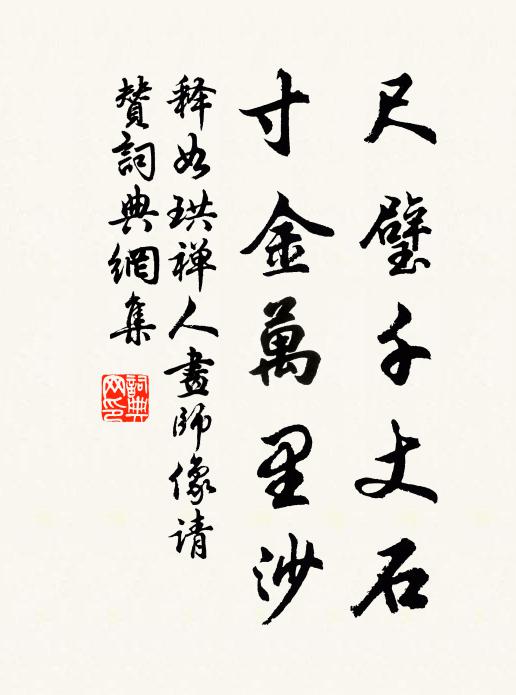 尺璧千丈石
寸金萬里沙
释如珙禅人畫師像请
赞詞典網集
詞典網印